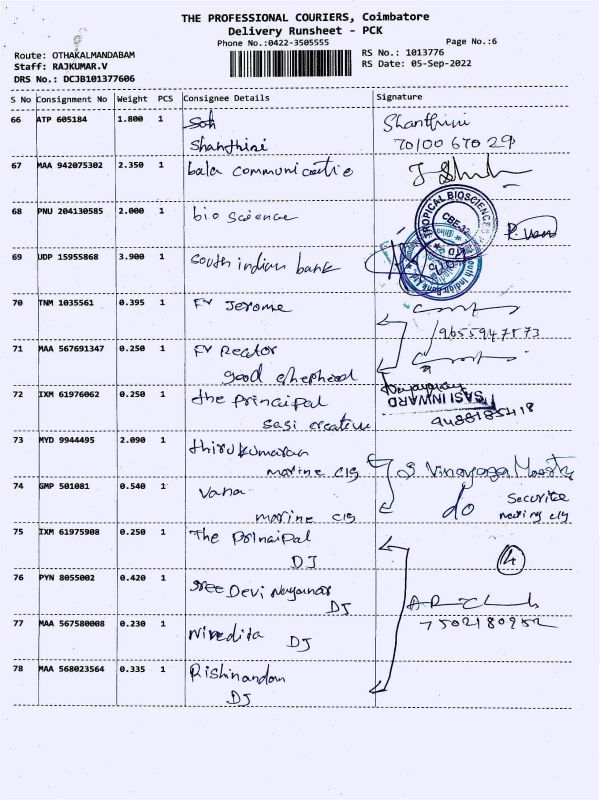 THE PROFESSIONAL COURIERS, Coimbatore
Delivery Runsheet - PCK
Phone No.:0422-3505555
Page No.:6
Route: OTHAKALMANDABAM
Staff: RAJKUMAR.V
DRS No.: DCJB101377606
RS No.: 1013776
RS Date: 05-Sep-2022
S No Consignment No Weight PCS Consignee Details Signature
66 ATP 605184 1.800 1 Shanthini Shanthini
70100 670 29
67 MAA 942075302 2.350 1 bala communicatio
68 PNU 204130585 2.000 1 bio science
TROPICAL BIOSCIENCE
CBE-32
69 UDP 15955868 3.900 1 South indian bank
South Indian Bank Ltd
70 TNM 1035561 0.395 1 Fr Jerome
9655947873
71 MAA 567691347 0.250 1 Fr Rector
good shepherd
72 IXM 61976062 0.250 1 the principal
sasi creative
SASI INWARD
9488185418
73 MYD 9944495 2.090 1 thirukumaran
marine clg
S. Vinayaga Moorthy
74 GMP 501081 0.540 1 Vana
marine clg
do
75 IXM 61975908 0.250 1 The principal
DJ
4
76 PYN 8055002 0.420 1 Sree Devi Nayanar
DJ
7502180952
77 MAA 567580008 0.230 1 Nivedita DJ
78 MAA 568023564 0.335 1 Rishinandan
DJ